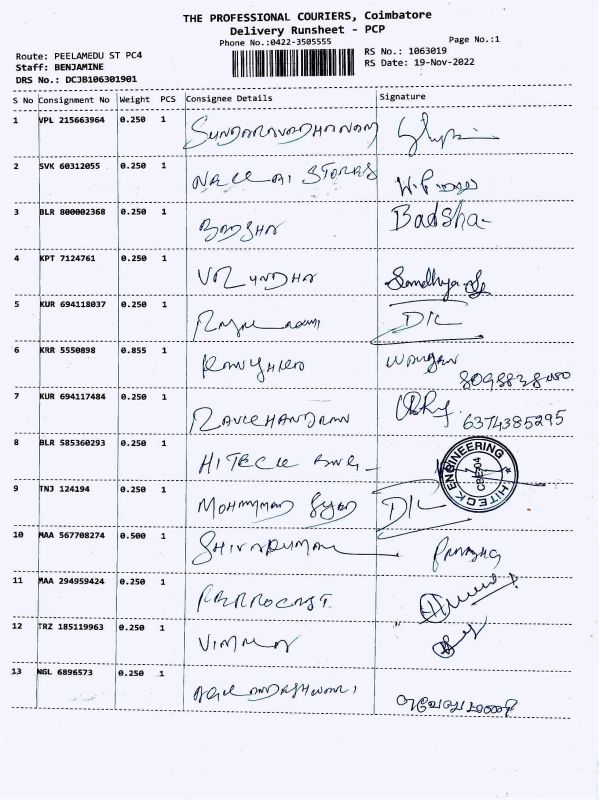 THE PROFESSIONAL COURIERS, Coimbatore
Delivery Runsheet - PCP
Phone No.:0422-3505555
Page No.:1
Route: PEELAMEDU ST PC4
RS No.: 1063019
Staff: BENJAMINE
RS Date: 19-Nov-2022
DRS No.: DCJB106301901
S No Consignment No Weight PCS Consignee Details Signature
1 VPL 215663964 0.250 1 SUNDARAVADHANAM
2 SVK 60312055 0.250 1 NELLAI STORES
3 BLR 800002368 0.250 1 BADSHA Badsha
4 KPT 7124761 0.250 1 Sandhya
5 KUR 694118037 0.250 1 D/L
6 KRR 5550898 0.855 1
7 KUR 694117484 0.250 1 RAVICHANDRAN 6374385295
8 BLR 585360293 0.250 1 HITECK ENG HITECK ENGINEERING
9 TNJ 124194 0.250 1 MOHAMMAD SYED D/L
10 MAA 567708274 0.500 1 SHIVAKUMAR
11 MAA 294959424 0.250 1
12 TRZ 185119963 0.250 1 VIMALA
13 NGL 6896573 0.250 1